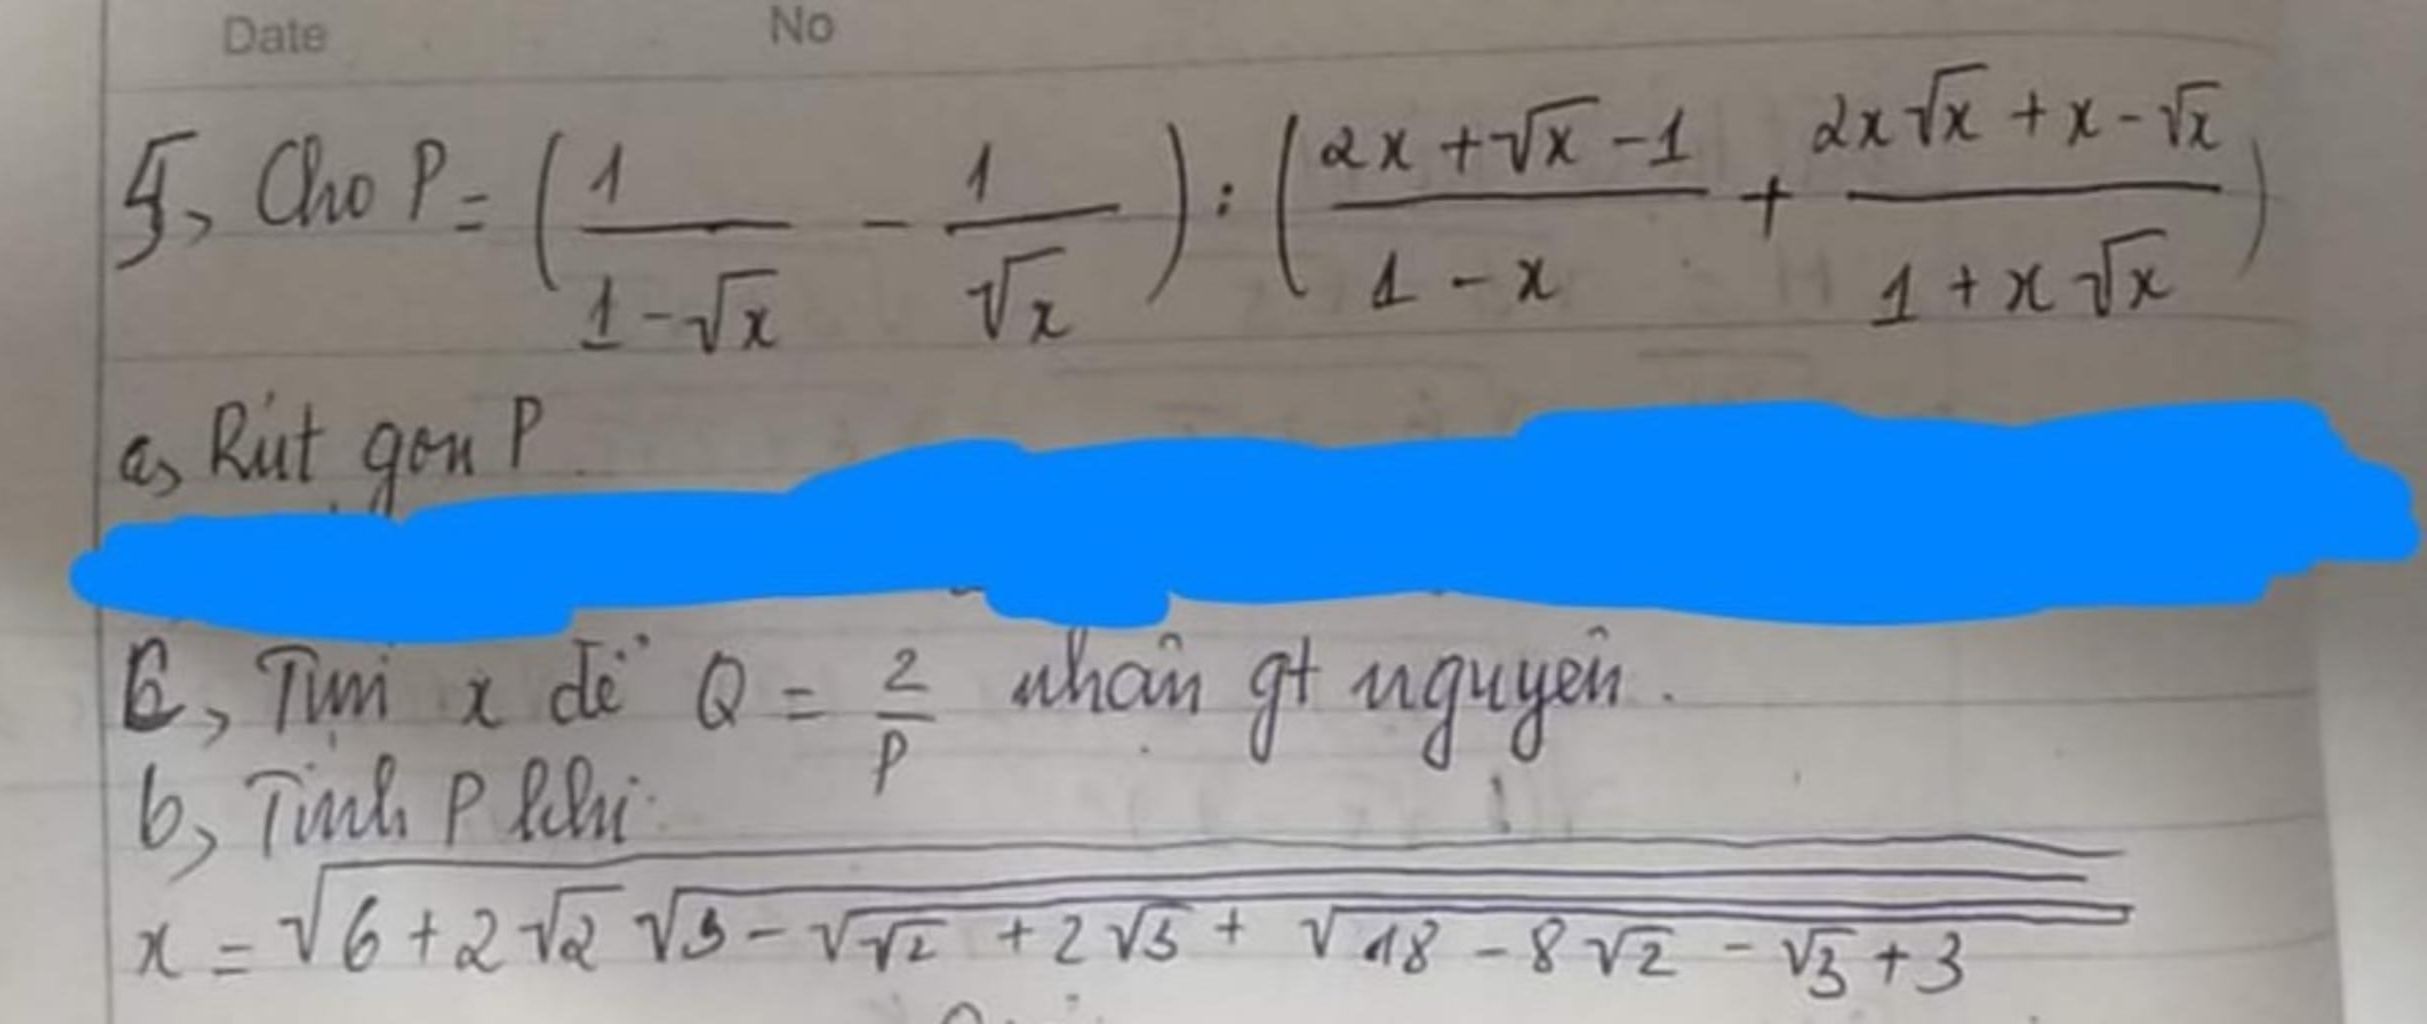 Date No
5, Cho P = (1/(1-√x) - 1/√x) : ((2x+√x-1)/(1-x) + (2x√x+x-√x)/(1+x√x))
a, Rút gọn P
C, Tìm x để Q = 2/P nhận gt nguyên.
b, Tính P khi
x = √(6+2√2√(3-√(√2+2√3+√(18-8√2-√3+3))))